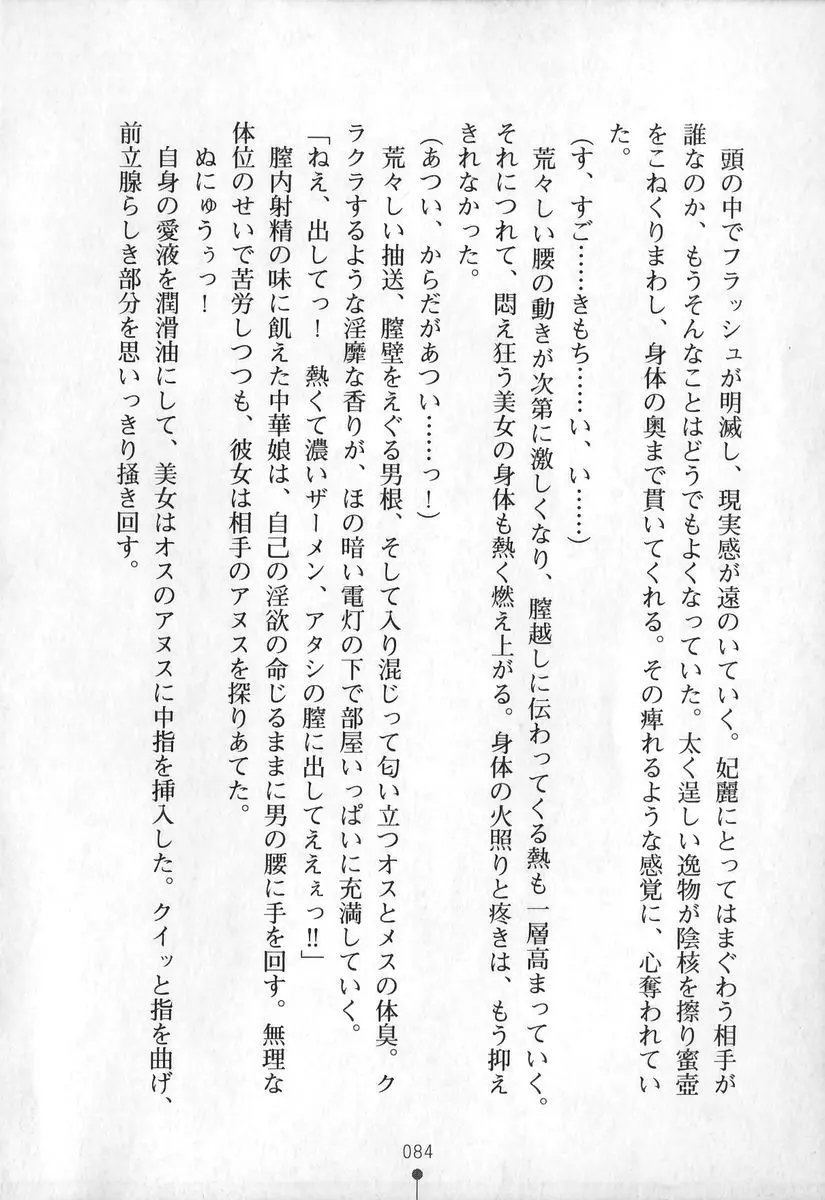 頭の中でフラッシュが明滅し、現実感が遠のいていく。妃麗にとってはまぐわう相手が
誰なのか、もうそんなことはどうでもよくなっていた。太く逞しい逸物が陰核を擦り蜜壺
をこねくりまわし、身体の奥まで貫いてくれる。その痺れるような感覚に、心奪われてい
た。
（す、すご……きもち……い、い……）
　荒々しい腰の動きが次第に激しくなり、膣越しに伝わってくる熱も一層高まっていく。
それにつれて、悶え狂う美女の身体も熱く燃え上がる。身体の火照りと疼きは、もう抑え
きれなかった。
（あつい、からだがあつい……っ！）
　荒々しい抽送、膣壁をえぐる男根、そして入り混じって匂い立つオスとメスの体臭。ク
ラクラするような淫靡な香りが、ほの暗い電灯の下で部屋いっぱいに充満していく。
「ねえ、出してっ！　熱くて濃いザーメン、アタシの膣に出してええぇっ!!」
　膣内射精の味に飢えた中華娘は、自己の淫欲の命じるままに男の腰に手を回す。無理な
体位のせいで苦労しつつも、彼女は相手のアヌスを探りあてた。
　ぬにゅうぅっ！
　自身の愛液を潤滑油にして、美女はオスのアヌスに中指を挿入した。クイッと指を曲げ、
前立腺らしき部分を思いっきり掻き回す。
084